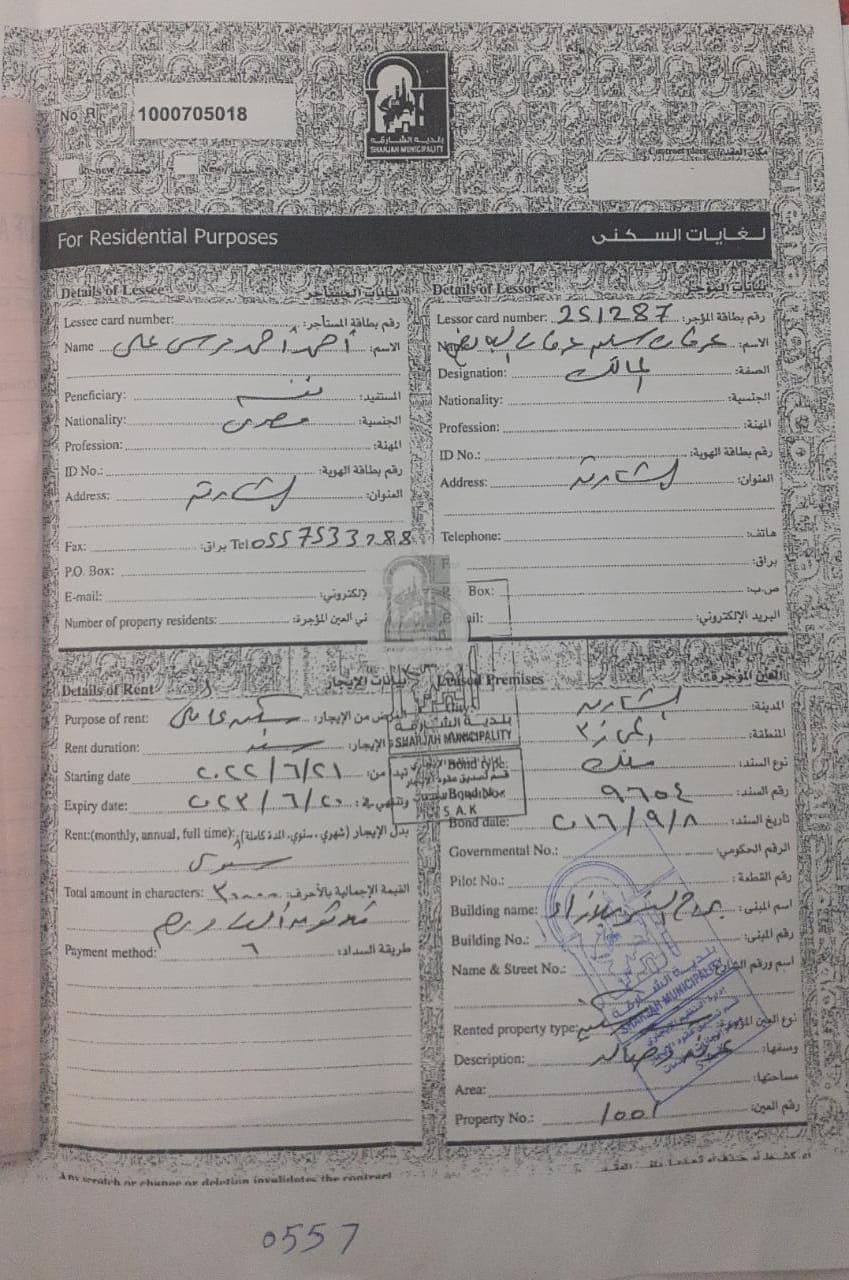 No R 1000705018
بلدية الشارقة
SHARJAH MUNICIPALITY
مكان العقد: Contract place
For Residential Purposes لغايات السكنى
Details of Lessee بيانات المستأجر
Lessee card number: رقم بطاقة المستأجر:
Name أحمد أحمد مرسى على الاسم:
Peneficiary: المستفيد:
Nationality: مصرى الجنسية:
Profession: المهنة:
ID No.: رقم بطاقة الهوية:
Address: الشارقة العنوان:
Fax: براق: Tel 0557533288
P.O. Box:
E-mail: لإلكتروني:
Number of property residents: في العين المؤجرة:
Details of Lessor بيانات المؤجر
Lessor card number: 251287 رقم بطاقة المؤجر:
عرفات سليم عرفات الاسم:
Designation: المالك الصفة:
Nationality: الجنسية:
Profession: المهنة:
ID No.: رقم بطاقة الهوية:
Address: الشارقة العنوان:
Telephone: هاتف:
براق:
Box: ص.ب:
ail: البريد الإلكتروني:
Details of Rent بيانات الإيجار
Purpose of rent: سكن عائلى الغرض من الإيجار:
Rent duration: سنة الإيجار:
Starting date ٢٠٢٢/٦/٢١ من:
Expiry date: ٢٠٢٣/٦/٢٠ وتنتهي في:
Rent:(monthly, annual, full time): بدل الإيجار (شهري، سنوي، المدة كاملة):
سنوى
Total amount in characters: ٣٠٠٠٠ القيمة الإجمالية بالأحرف:
ثلاثون ألف درهم
Payment method: ٦ طريقة السداد:
Leased Premises العين المؤجرة
الشارقة المدينة:
المنطقة:
Bond type: ملك نوع السند:
Bond No: ٩٦٥٤ رقم السند:
Bond date: ٢٠١٦/٩/٨ تاريخ السند:
Governmental No.: الرقم الحكومي:
Pilot No.: رقم القطعة:
Building name: اسم المبنى:
Building No.: رقم المبنى:
Name & Street No.: اسم ورقم الشارع:
Rented property type: نوع العين المؤجرة:
Description: غرفة وصالة وصفها:
Area: مساحتها:
Property No.: 1001 رقم العين:
بلدية الشارقة
SHARJAH MUNICIPALITY
قسم تصديق عقود الإيجار
S.A.K
بلدية الشارقة
SHARJAH MUNICIPALITY
Any scratch or change or deletion invalidates the contract
0557